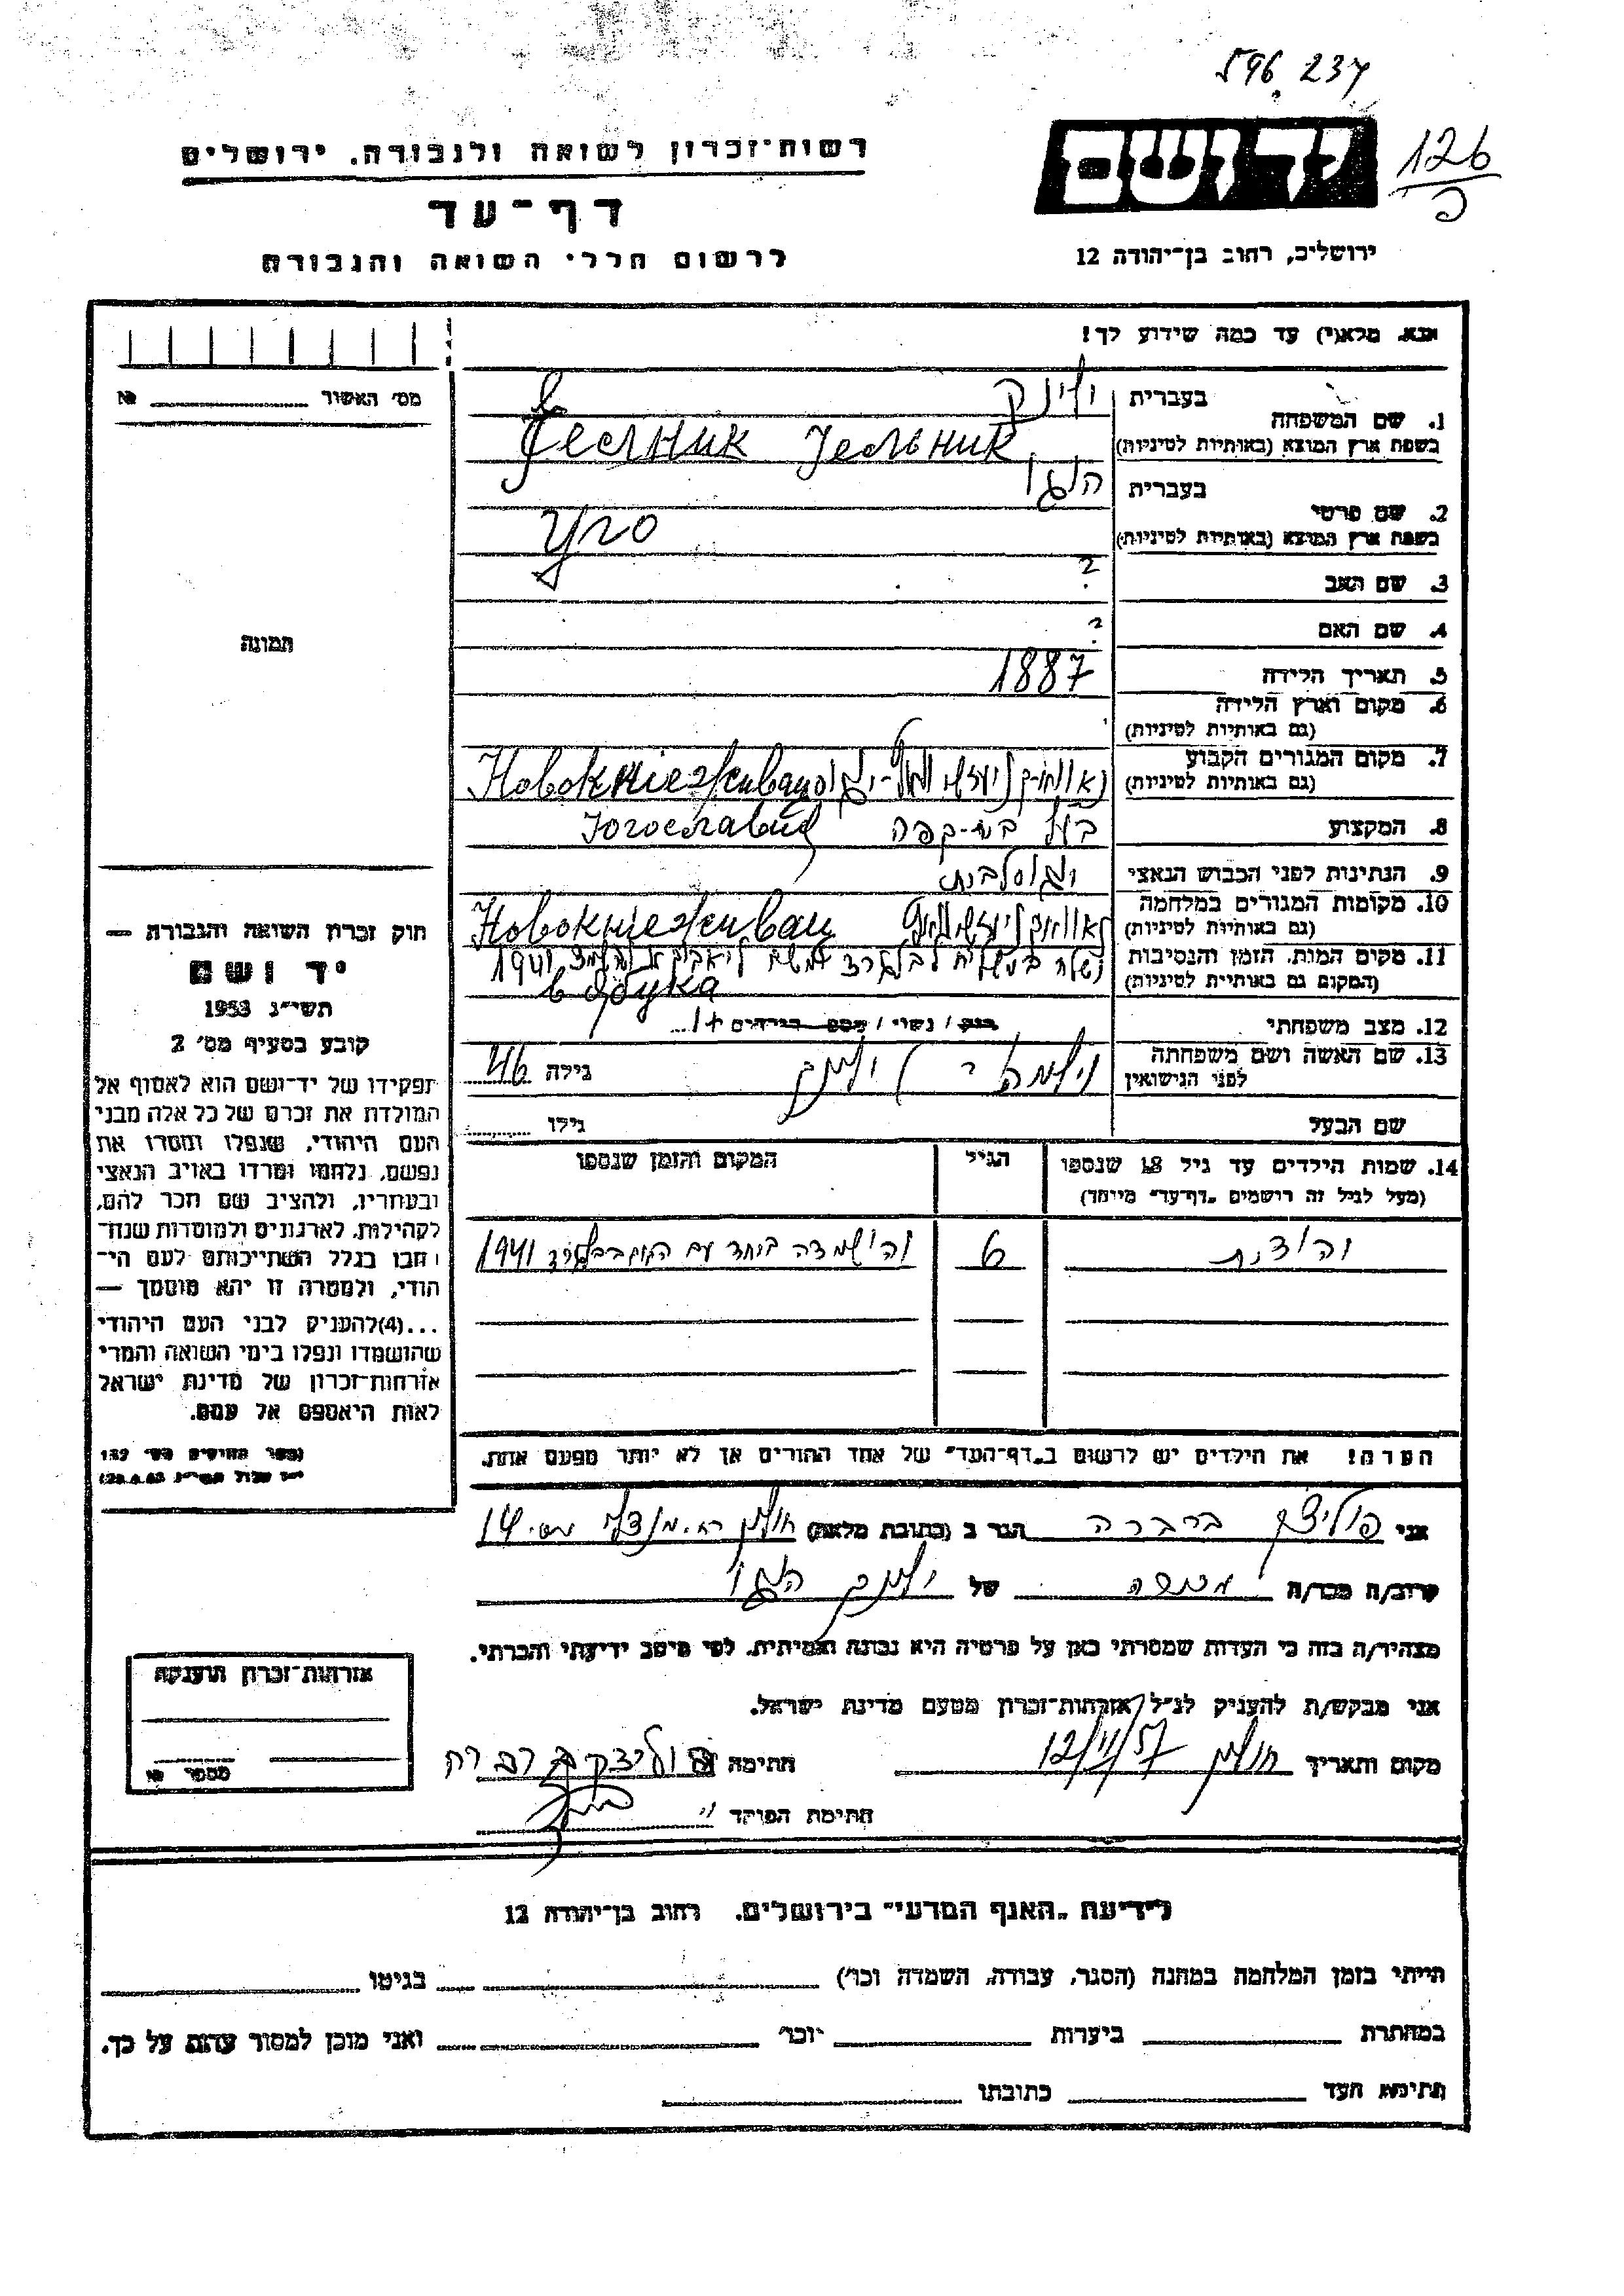 596 237
126
כ
יד ושם
רשות-זכרון לשואה ולגבורה. ירושלים
דף-עד
לרשום חללי השואה והגבורה
ירושלים, רחוב בן-יהודה 12
אנא. מלא(י) עד כמה שידוע לך!
מס׳ האשור № 
1. שם המשפחה
בעברית
בשפת ארץ המוצא (באותיות לטיניות)
Јелник Јельник
2. שם פרטי
בעברית הוגו
בשפת ארץ המוצא (באותיות לטיניות)
Уго
3. שם האב ?
4. שם האם ?
5. תאריך הלידה 1887
6. מקום וארץ הלידה
(גם באותיות לטיניות)
7. מקום המגורים הקבוע
(גם באותיות לטיניות)
8. המקצוע בעל בית-קפה
9. הנתינות לפני הכבוש הנאצי יוגוסלבית
10. מקומות המגורים במלחמה
(גם באותיות לטיניות)
11. מקום המות. הזמן והנסיבות
(המקום גם באותיות לטיניות)
1941
12. מצב משפחתי
רוק / נשוי / מספר הילדים 1+
13. שם האשה ושם משפחתה
לפני הנישואין
גילה 46
שם הבעל גילו
14. שמות הילדים עד גיל 18 שנספו
(מעל לגיל זה רושמים "דף-עד" מיוחד)
הגיל
המקום והזמן שנספו
יהודית 6 1941
הערה! את הילדים יש לרשום ב"דף-העד" של אחד ההורים אך לא יותר מפעם אחת.
תמונה
חוק זכרון השואה והגבורה —
יד ושם
תשי״ג 1953
קובע בסעיף מס׳ 2
תפקידו של יד-ושם הוא לאסוף אל
המולדת את זכרם של כל אלה מבני
העם היהודי, שנפלו ומסרו את
נפשם, נלחמו ומרדו באויב הנאצי
ובעוזריו, ולהציב שם וזכר להם,
לקהילות, לארגונים ולמוסדות שנח־
רבו בגלל השתייכותם לעם הי־
הודי, ולמטרה זו יהא מוסמך —
...(4)להעניק לבני העם היהודי
שהושמדו ונפלו בימי השואה והמרי
אזרחות-זכרון של מדינת ישראל
לאות היאספם אל עמם.
אני ברברה הגר ב (כתובת מלאה) חולון 14
קרוב/ה מכר/ה מכרה של ילניק הוגו
מצהיר/ה בזה כי העדות שמסרתי כאן על פרטיה היא נכונה ואמיתית. לפי מיטב ידיעתי והכרתי.
אני מבקש/ת להעניק לנ״ל אזרחות-זכרון מטעם מדינת ישראל.
מקום ותאריך חולון 12/11/57 חתימה ברברה
חתימת הפוקד
אזרחות-זכרון הוענקה
מספר №
לידיעת "האגף המדעי" בירושלים. רחוב בן-יהודה 12
הייתי בזמן המלחמה במחנה (הסגר, עבודה, השמדה וכו׳) בגיטו
במחתרת ביערות וכו׳ ואני מוכן למסור עדות על כך.
חתימת העד כתובתו